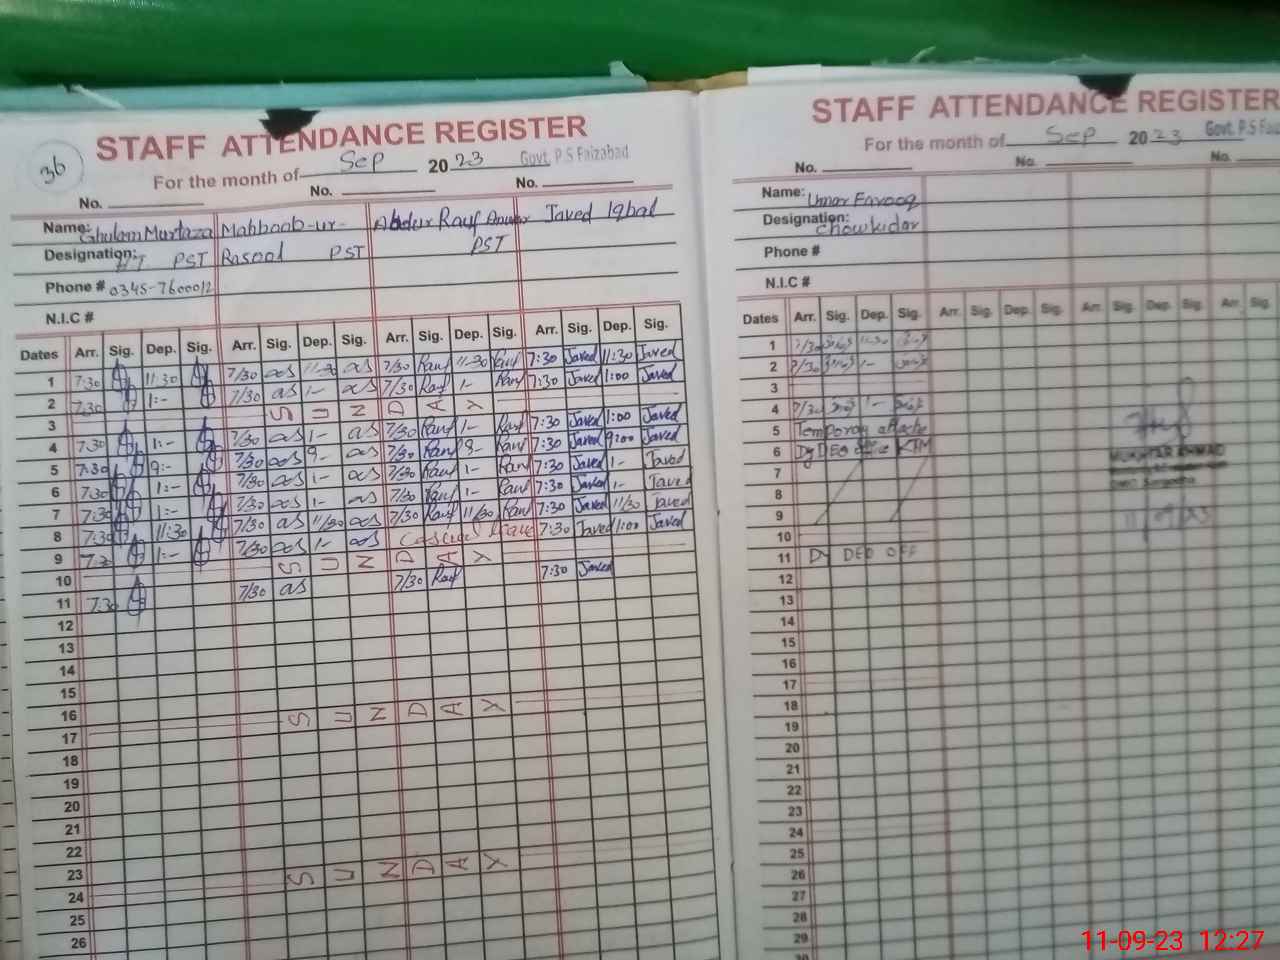 36
STAFF ATTENDANCE REGISTER
For the month of Sep 2023 Govt. P.S Faizabad
No. No. No.
Name: Ghulam Murtaza Mahboob-ur- Abdur Rauf Anwar Javed Iqbal
Designation: H.T PST Rasool PST PST
Phone # 0345-7600012
N.I.C #
Dates Arr. Sig. Dep. Sig. Arr. Sig. Dep. Sig. Arr. Sig. Dep. Sig. Arr. Sig. Dep. Sig.
1 7:30 11:30 7/30 as 11-30 as 7/30 Rauf 11-30 Rauf 7:30 Javed 11:30 Javed
2 7:30 1:- 7/30 as 1- as 7/30 Rauf 1- Rauf 7:30 Javed 1:00 Javed
3 SUNDAY
4 7:30 1:- 7/30 as 1- as 7/30 Rauf 1- Rauf 7:30 Javed 1:00 Javed
5 7:30 9:- 7/30 as 9- as 7/30 Rauf 9- Rauf 7:30 Javed 9:00 Javed
6 7:30 1:- 7/30 as 1- as 7/30 Rauf 1- Rauf 7:30 Javed 1- Javed
7 7:30 1:- 7/30 as 1- as 7/30 Rauf 1- Rauf 7:30 Javed 1- Javed
8 7:30 11:30 7/30 as 11/30 as 7/30 Rauf 11/30 Rauf 7:30 Javed 11/30 Javed
9 7:30 1:- 7/30 as 1- as Casual leave 7:30 Javed 1:00 Javed
10 SUNDAY
11 7:30 7/30 as 7/30 Rauf 7:30 Javed
12
13
14
15
16
17 SUNDAY
18
19
20
21
22
23
24 SUNDAY
25
26
STAFF ATTENDANCE REGISTER
For the month of Sep 2023 Govt. P.S Fai
No. No. No.
Name: Umar Farooq
Designation: Chowkidar
Phone #
N.I.C #
Dates Arr. Sig. Dep. Sig. Arr. Sig. Dep. Sig. Arr. Sig. Dep. Sig. Arr. Sig.
1 7/30 11-30
2 7/30 1-
3
4 7/30 1-
5 Temporary attache
6 Dy DEO office KTM
7
8
9
10
11 Dy DEO OFF
12
13
14
15
16
17
18
19
20
21
22
23
24
25
26
27
28
29
30
MUKHTAR AHMAD
Distt: Sargodha
11-09-23 12:27